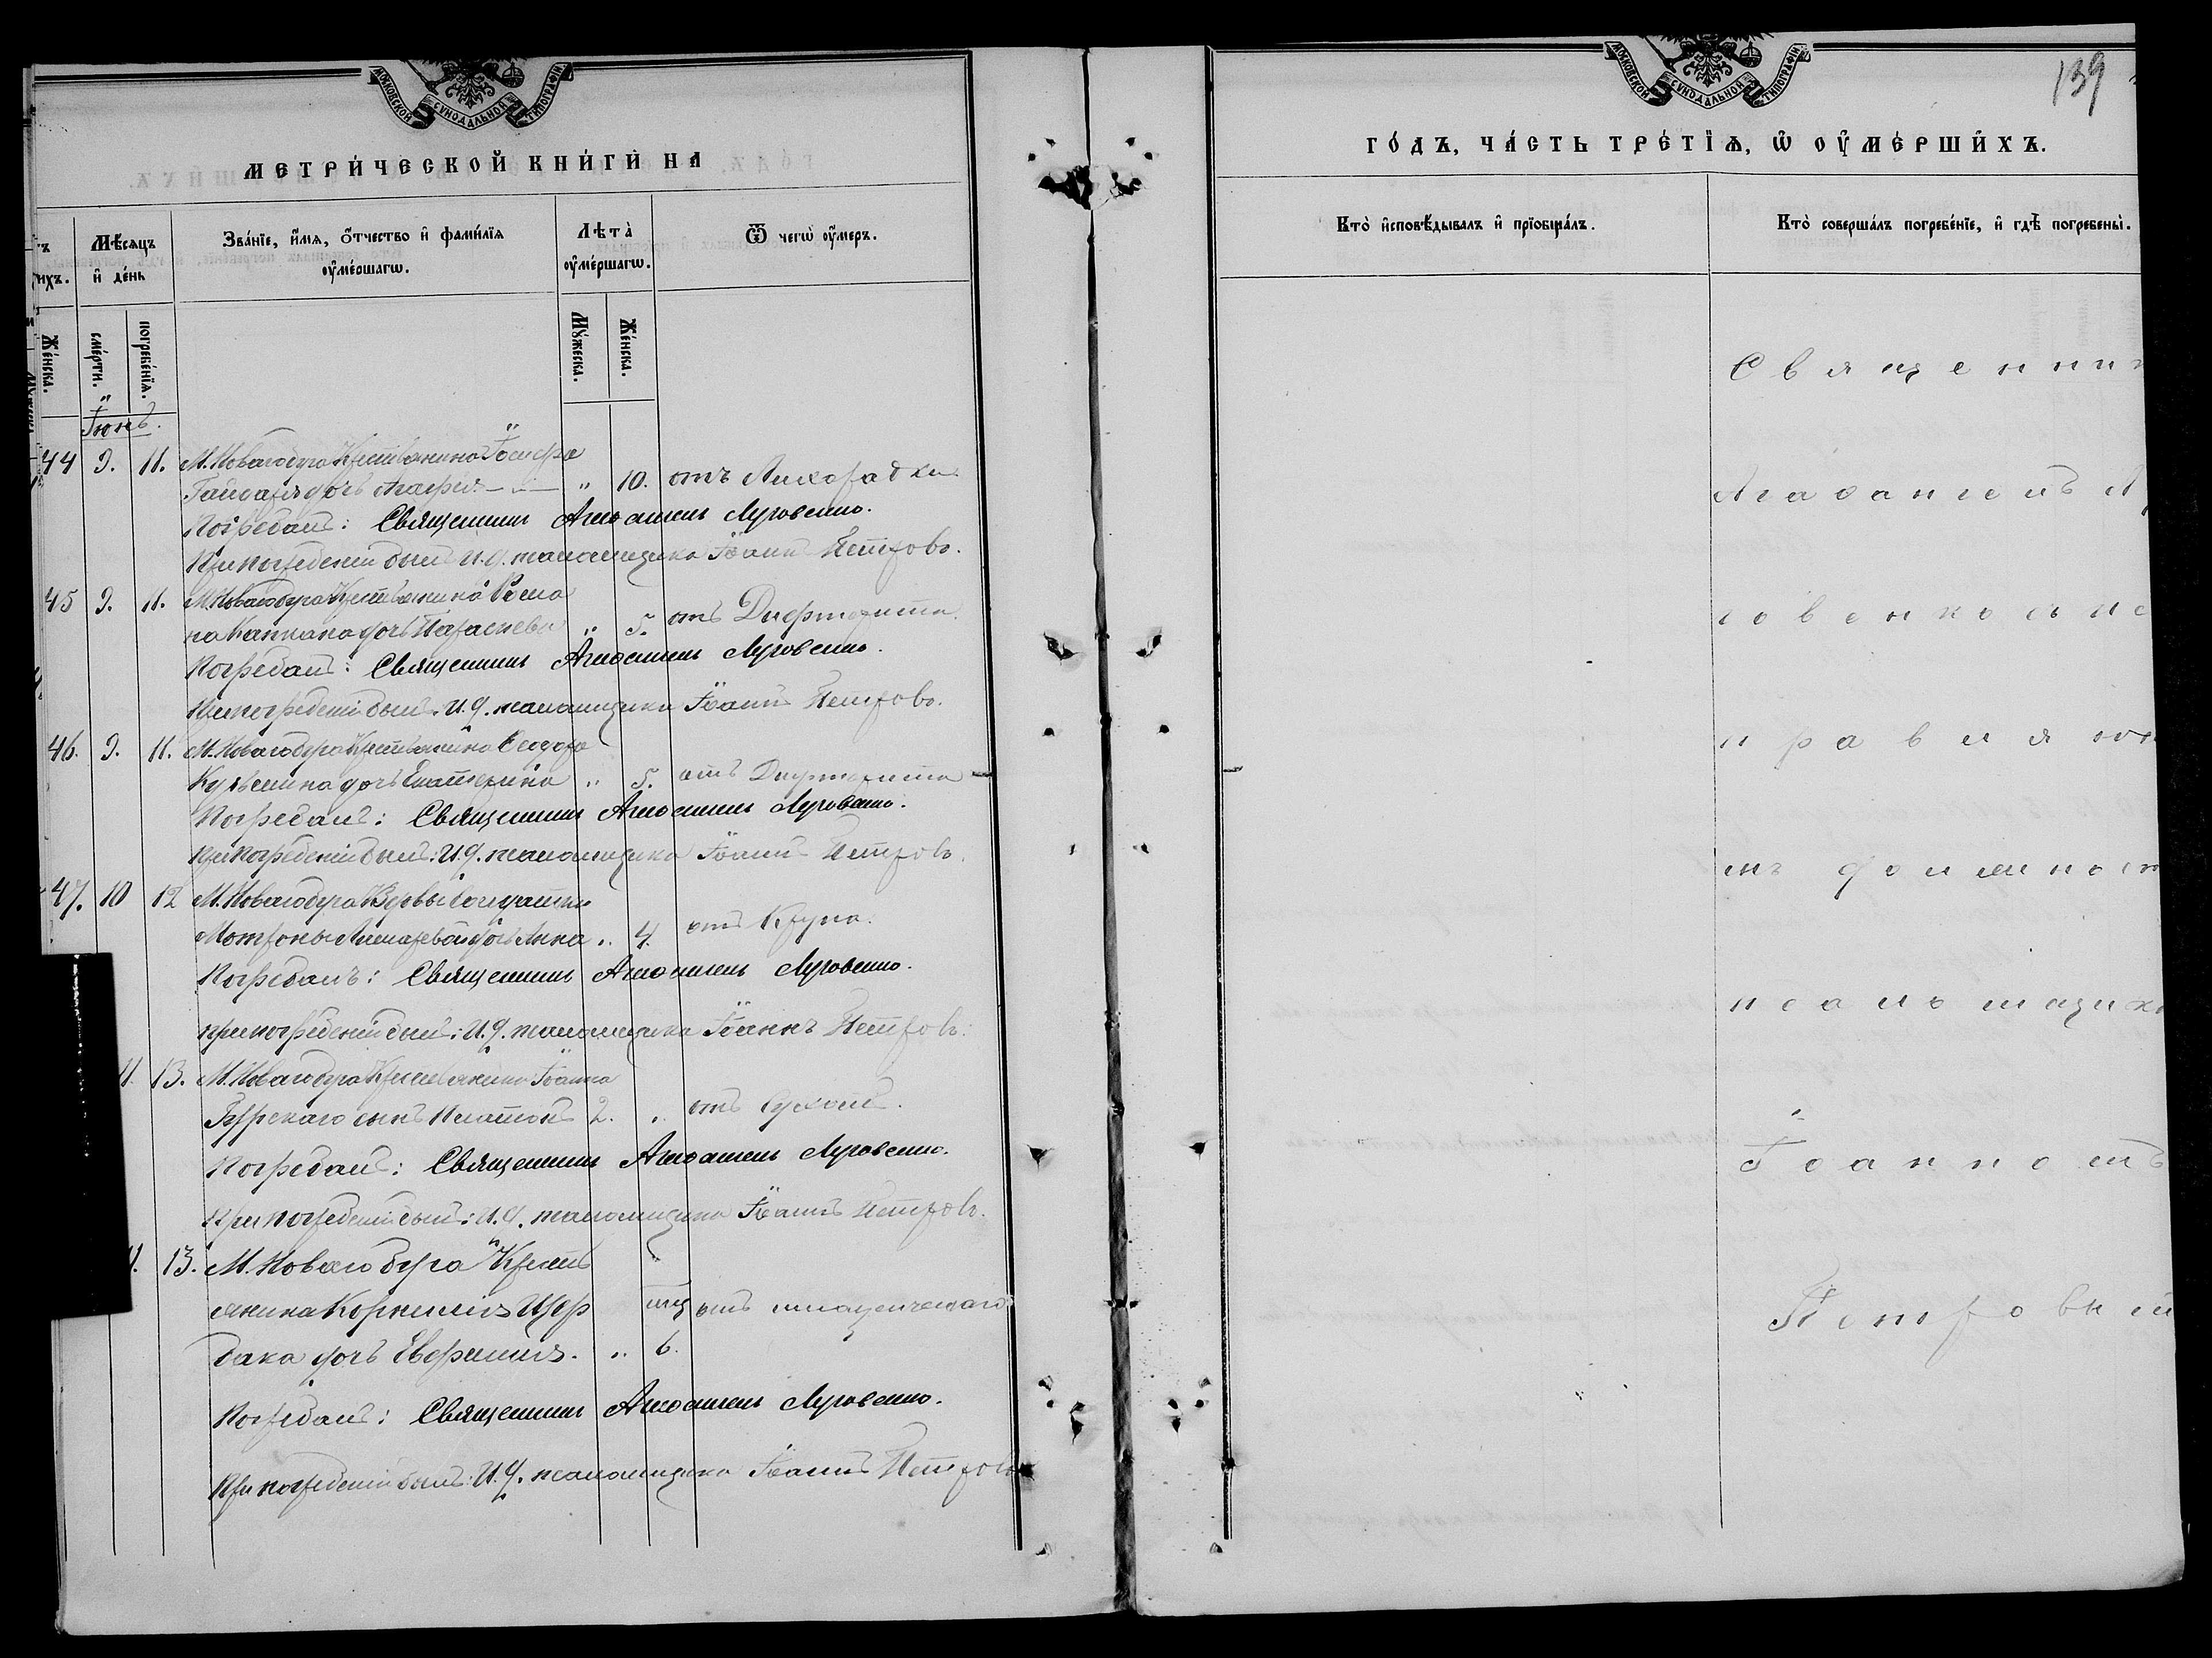 МОСКОВСКОЙ СУНОДАЛЬНОЙ ТИПОГРАФІИ
МЕТРИ́ЧЕСКОЙ КНИ́ГИ НА
Мѣ́сяцъ и҆ де́нь
Зва́нїе, и҆́мя, ѻ҆́тчество и҆ фами́лїя ᲂу҆ме́ршагѡ.
Лѣта̀ ᲂу҆ме́ршагѡ.
Ѿ чегѡ̀ ᲂу҆́меръ.
Же́нска.
сме́рти.
погребе́нїя.
Мꙋ́жеска.
Же́нска.
Іюнь.
44 9. 11. М. Новаго буга Крестьянина Іосифа
дочь Агафія 10. отъ Лихорадки
Погребалъ: Священникъ Агафангелъ Луговенко.
При погребеніи былъ И. д. псаломщика Іоаннъ Петровъ.
45 9. 11. М. Новаго буга Крестьянина Рома
на Каплана дочь Параскева 5. отъ Дифтерита.
Погребалъ: Священникъ Агафангелъ Луговенко.
При погребеніи былъ: И. д. псаломщика Іоаннъ Петровъ.
46. 9. 11. М. Новаго буга Крестьянина Ѳеодора
дочь Екатерина 5. отъ Дифтерита
Погребалъ: Священникъ Агафангелъ Луговенко.
При погребеніи былъ: И. д. псаломщика Іоаннъ Петровъ.
47. 10 12 М. Новаго буга Вдовы солдатки
Мотроны дочь Анна 4. отъ Крупа.
Погребалъ: Священникъ Агафангелъ Луговенко.
При погребеніи былъ: И. д. псаломщика Іоаннъ Петровъ.
11. 13. М. Новаго буга Крестьянина Іоанна
сынъ Платонъ 2. отъ Сухотъ.
Погребалъ: Священникъ Агафангелъ Луговенко.
При погребеніи былъ: И. д. псаломщика Іоаннъ Петровъ.
11. 13. М. Новаго буга Кресть
янина Корнилія Щер мц отъ младенческаго
бака дочь Евфимія. 6.
Погребалъ: Священникъ Агафангелъ Луговенко.
При погребеніи былъ: И. д. псаломщика Іоаннъ Петровъ
МОСКОВСКОЙ СУНОДАЛЬНОЙ ТИПОГРАФІИ
139
ГО́ДЪ, ЧА́СТЬ ТРЕ́ТЇѦ, Ѡ҆ ОУ҆МЕ́РШИХЪ.
Кто̀ и҆сповѣ́дывалъ и҆ прїобща́лъ.
Кто̀ соверша́лъ погребе́нїе, и҆ гдѣ̀ погребены̀.
Священник
Агафангелъ Лу
говенко съ ис
правляю
мъ должност
псаломщик
Іоанномъ
Петровым